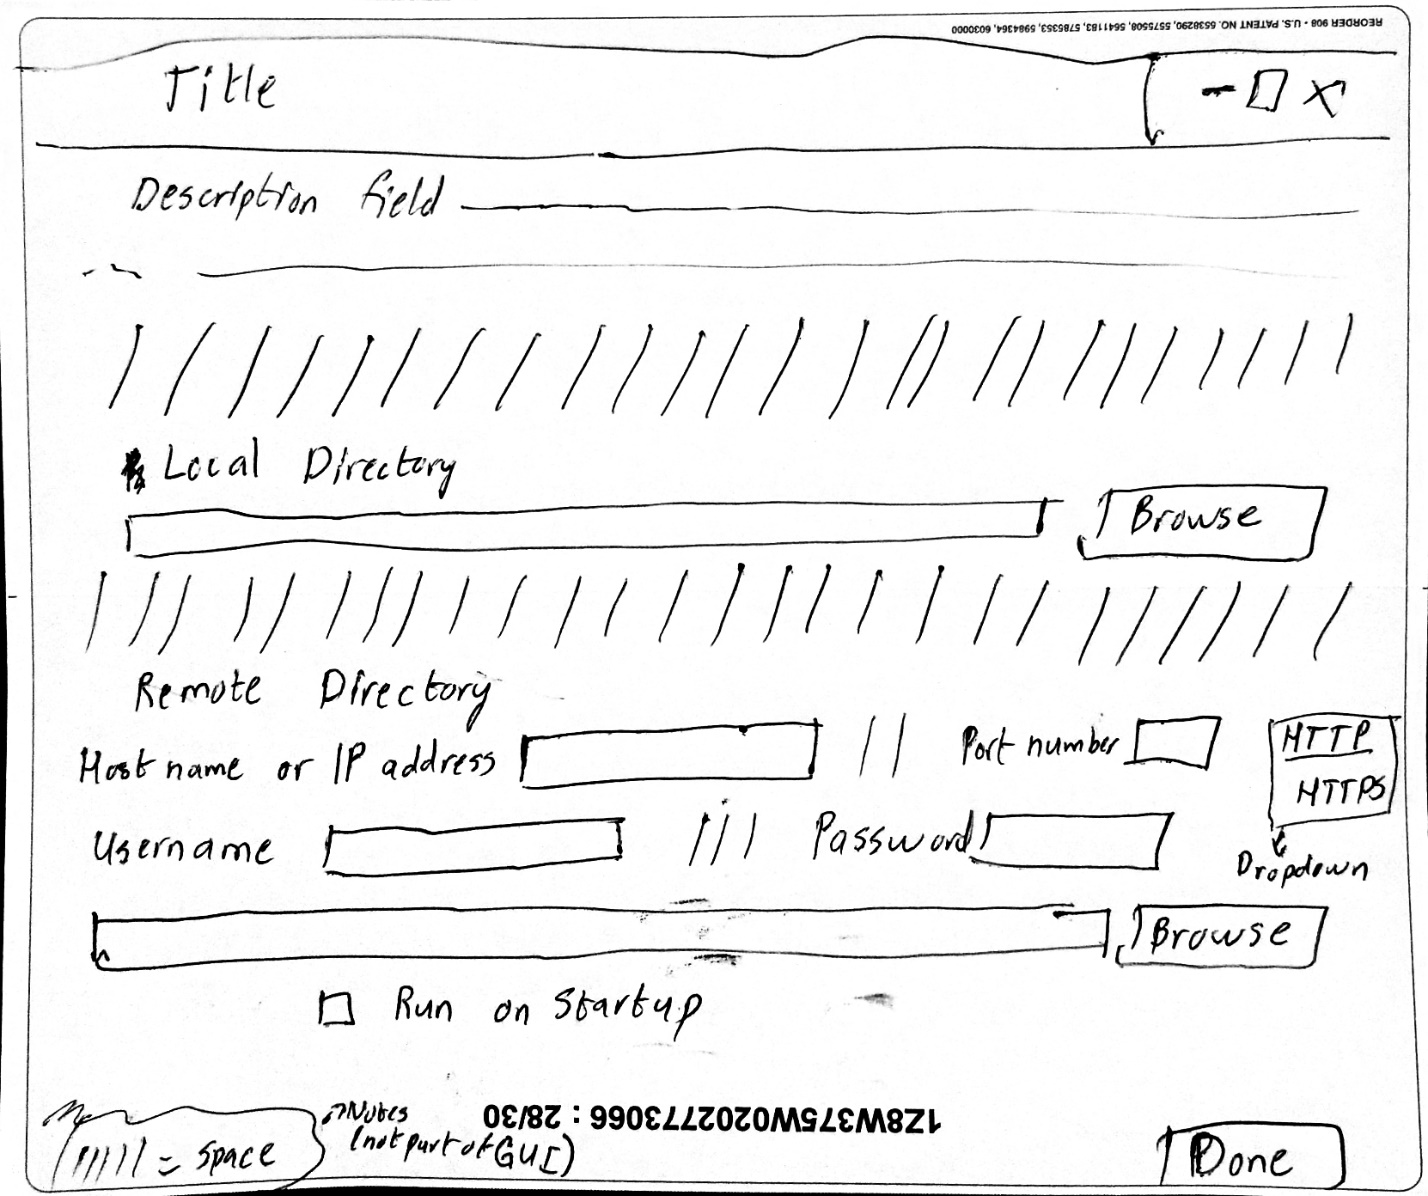 REORDER 908 - U.S. PATENT NO. 6538290, 5575508, 5641183, 5785353, 5984364, 6030000
Title - X
Description field
Local Directory
Browse
Remote Directory
Host name or IP address Port number HTTP
HTTPS
Username Password
Dropdown
Browse
Run on Startup
Notes
(not part of GUI)
1Z8W375W0202773066 : 28/30
= space
Done